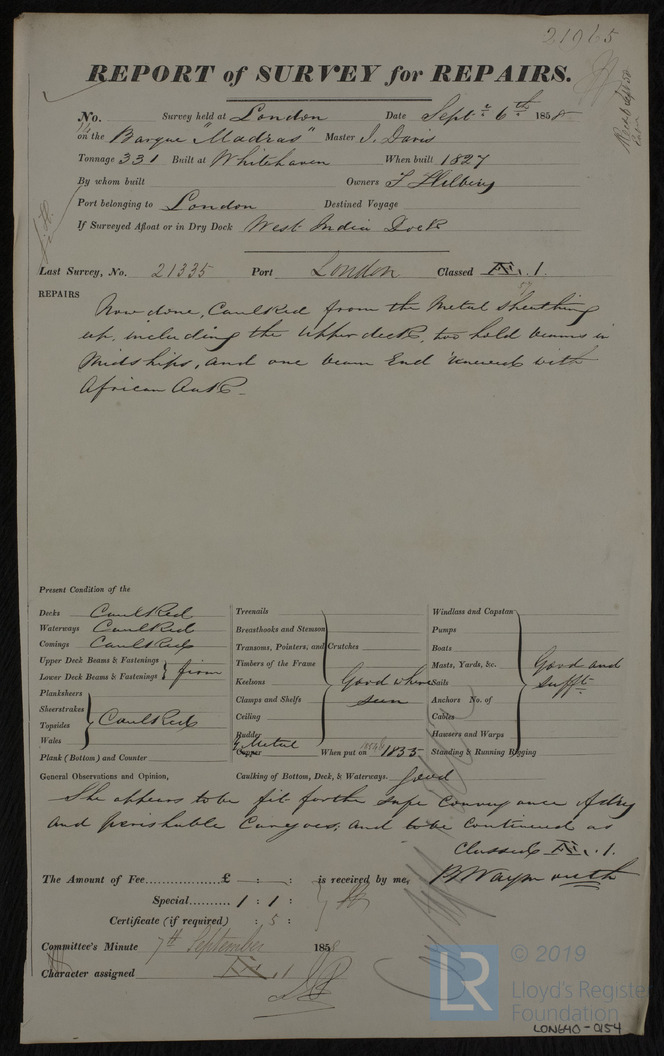 21065
REPORT of SURVEY for REPAIRS.
No. Survey held at London Date Septr 6th 1858
on the Barque "Madras" Master J. Davis
Tonnage 331 Built at Whitehaven When built 1827
By whom built Owners T Hilbing
Port belonging to London Destined Voyage
If Surveyed Afloat or in Dry Dock West India Dock
Last Survey, No. 21335 Port London Classed Æ .1.
57
REPAIRS Now done, Caulked from the Metal Sheathing
up, including the Upper deck, two hold beams in
Midships, and one beam End renewed with
African Oak.
Present Condition of the
Decks Caulked
Waterways Caulked
Comings Caulked
Upper Deck Beams & Fastenings
Lower Deck Beams & Fastenings firm
Planksheers
Sheerstrakes
Topsides Caulked
Wales
Plank (Bottom) and Counter
Treenails
Breasthooks and Stemson
Transoms, Pointers, and Crutches
Timbers of the Frame
Keelsons Good where
Clamps and Shelfs seen
Ceiling
Rudder
Y. Metal
Copper When put on 1835
Windlass and Capstan
Pumps
Boats
Masts, Yards, &c. Good and
Sails sufft
Anchors No. of
Cables
Hawsers and Warps
Standing & Running Rigging
General Observations and Opinion, Caulking of Bottom, Deck, & Waterways. Good
She appears to be fit for the safe conveyance of dry
and perishable Cargoes, and to be continued as
Classed Æ .1.
The Amount of Fee £ : : is received by me, B Waymouth
Special 1 : 1 :
Certificate (if required) : 5 :
Committee's Minute 7th September 1858
Character assigned Æ .1
© 2019
LR
Lloyd's Register
Foundation
LON640-0154